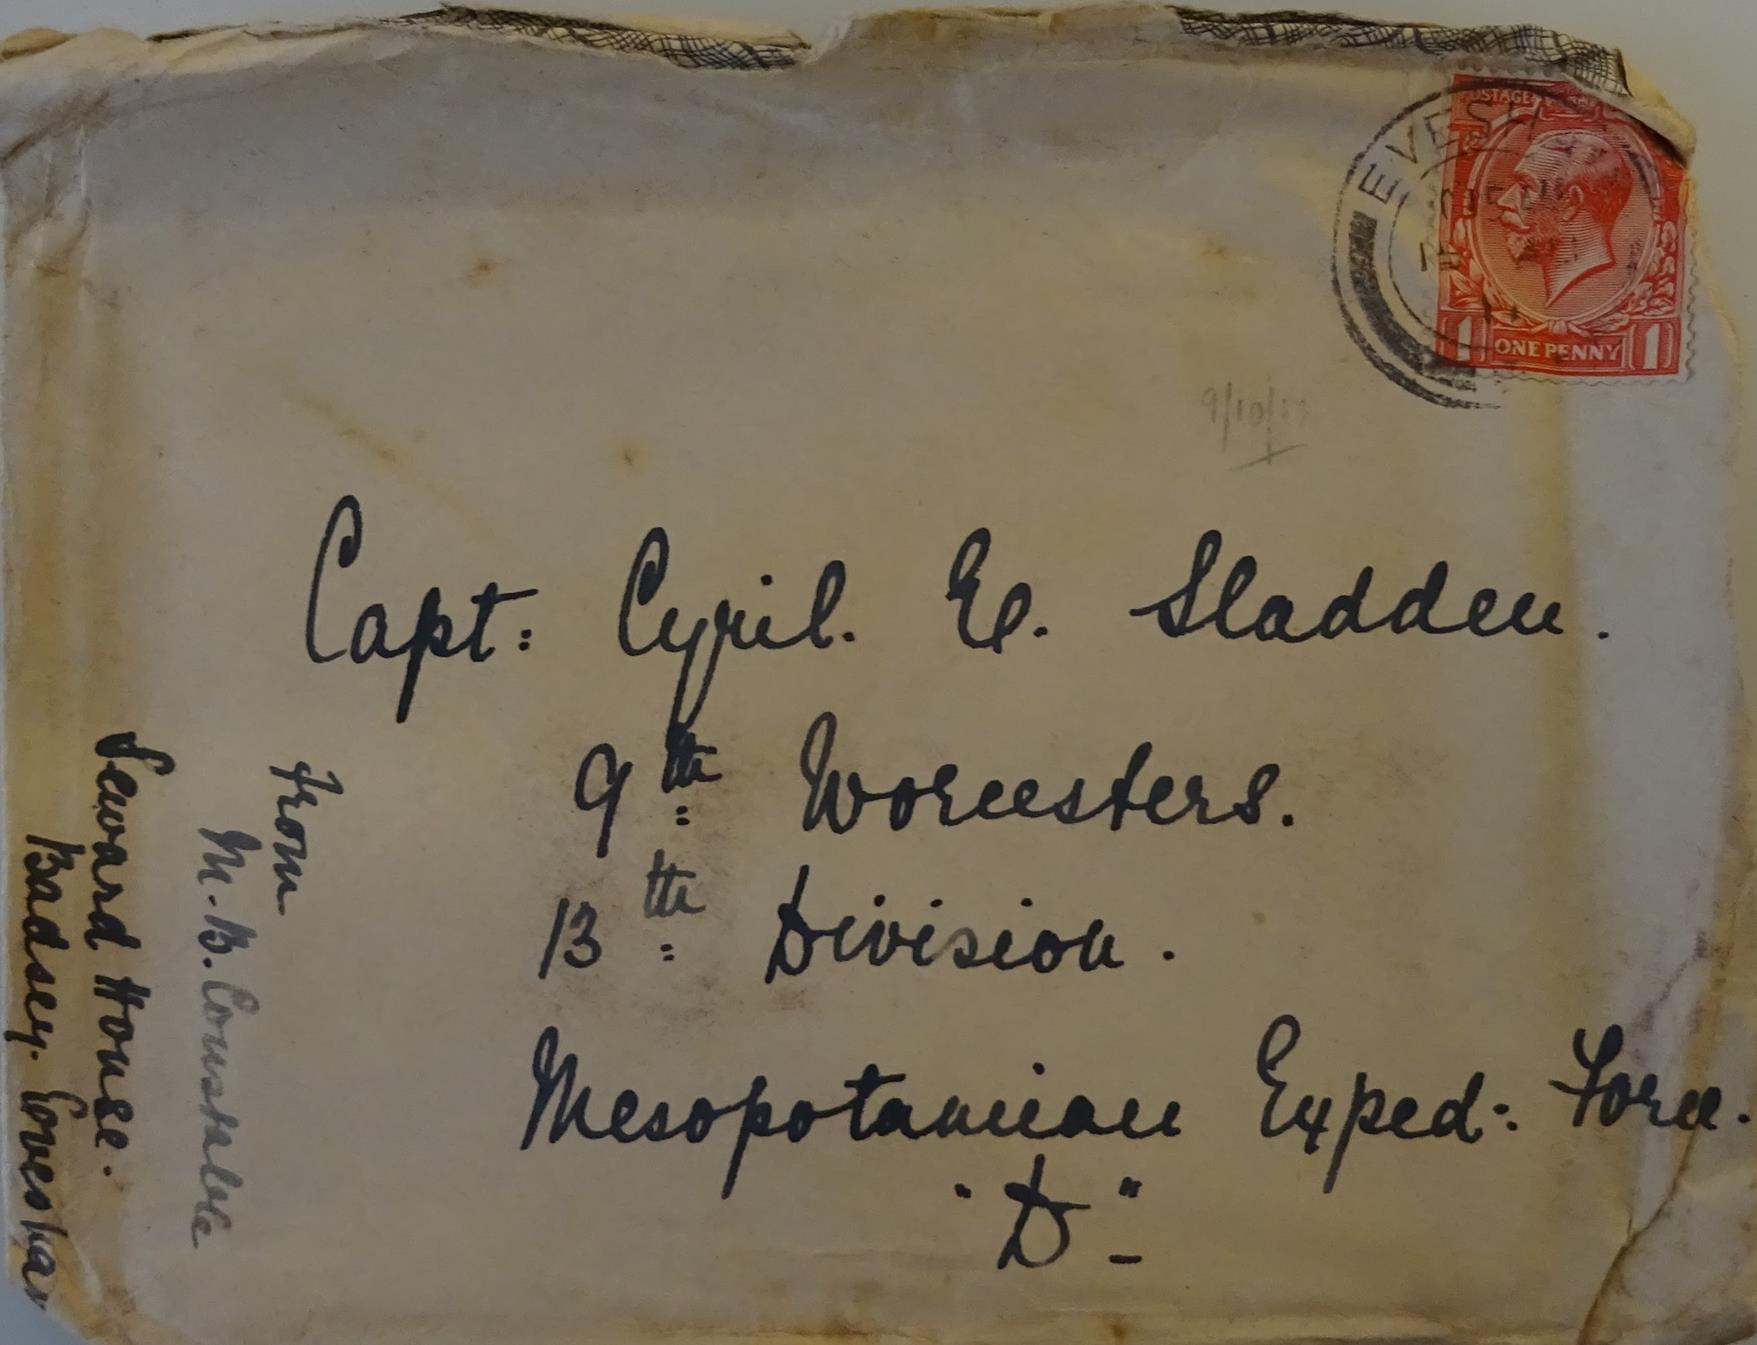 POSTAGE
EVESH
1 ONE PENNY 1
9/10/
Capt: Cyril. E. Sladden.
9th Worcesters.
13th Division.
Mesopotamian Exped: Force.
"D"
From
M. B. Constable
Seward House.
Badsey. Evesham